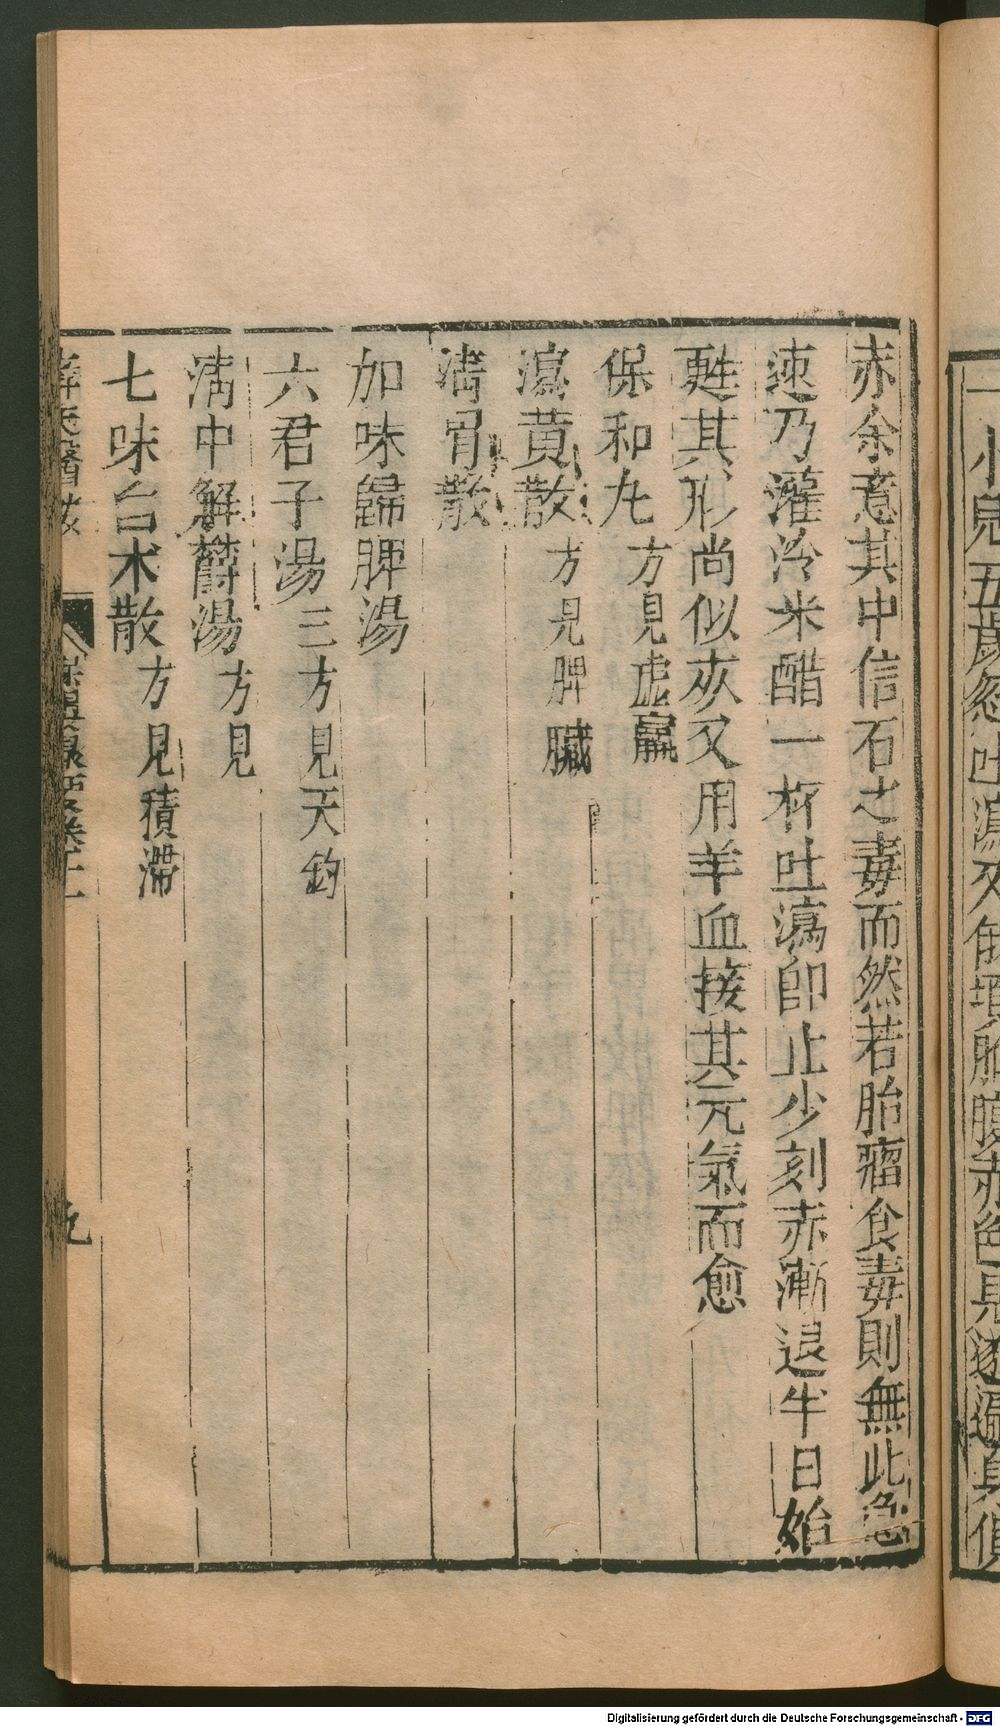 一小兒五歲忽吐瀉又
胸腹赤色見
赤余意其中信石之毒而然若胎瘤食毒則無此急
速乃灌冷米醋一杯吐瀉即止少刻赤漸退半日始
甦其形尚似灰又用羊血接其元氣而愈
保和丸方見虛羸
瀉黄散方見脾臟
清胃散
加味歸脾湯
六君子湯三方見天釣
清中解鬱湯方見
七味台术散方見積滯
薛氏醫按
保嬰
Digitalisierung gefördert durch die Deutsche Forschungsgemeinschaft - DFG